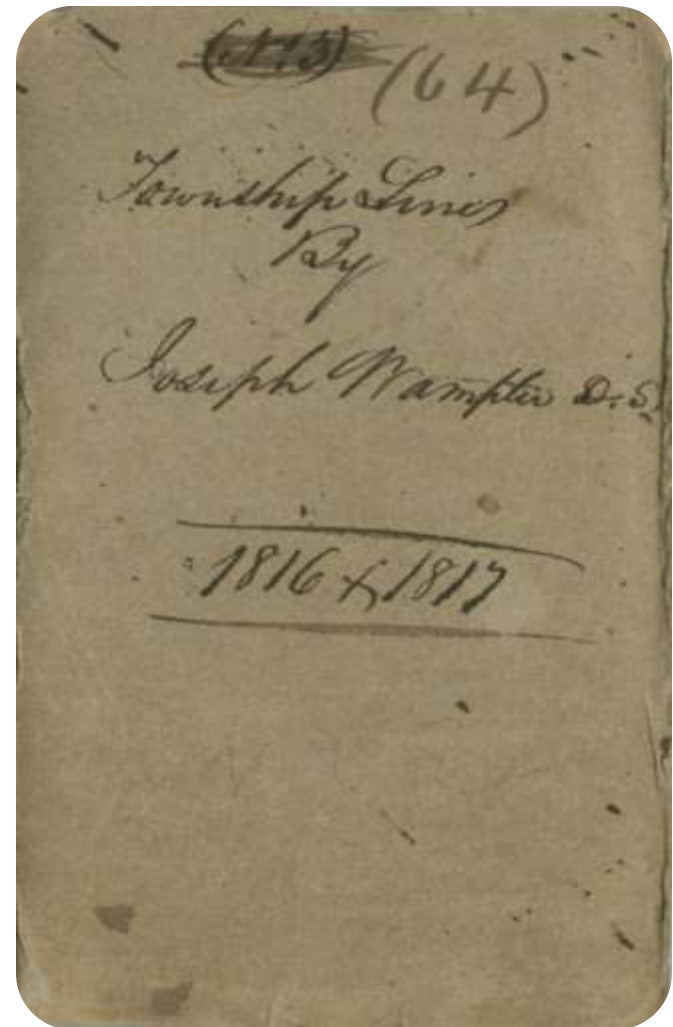 (64)
Township Lines
By
Joseph Wampler D. S.
1816 & 1817